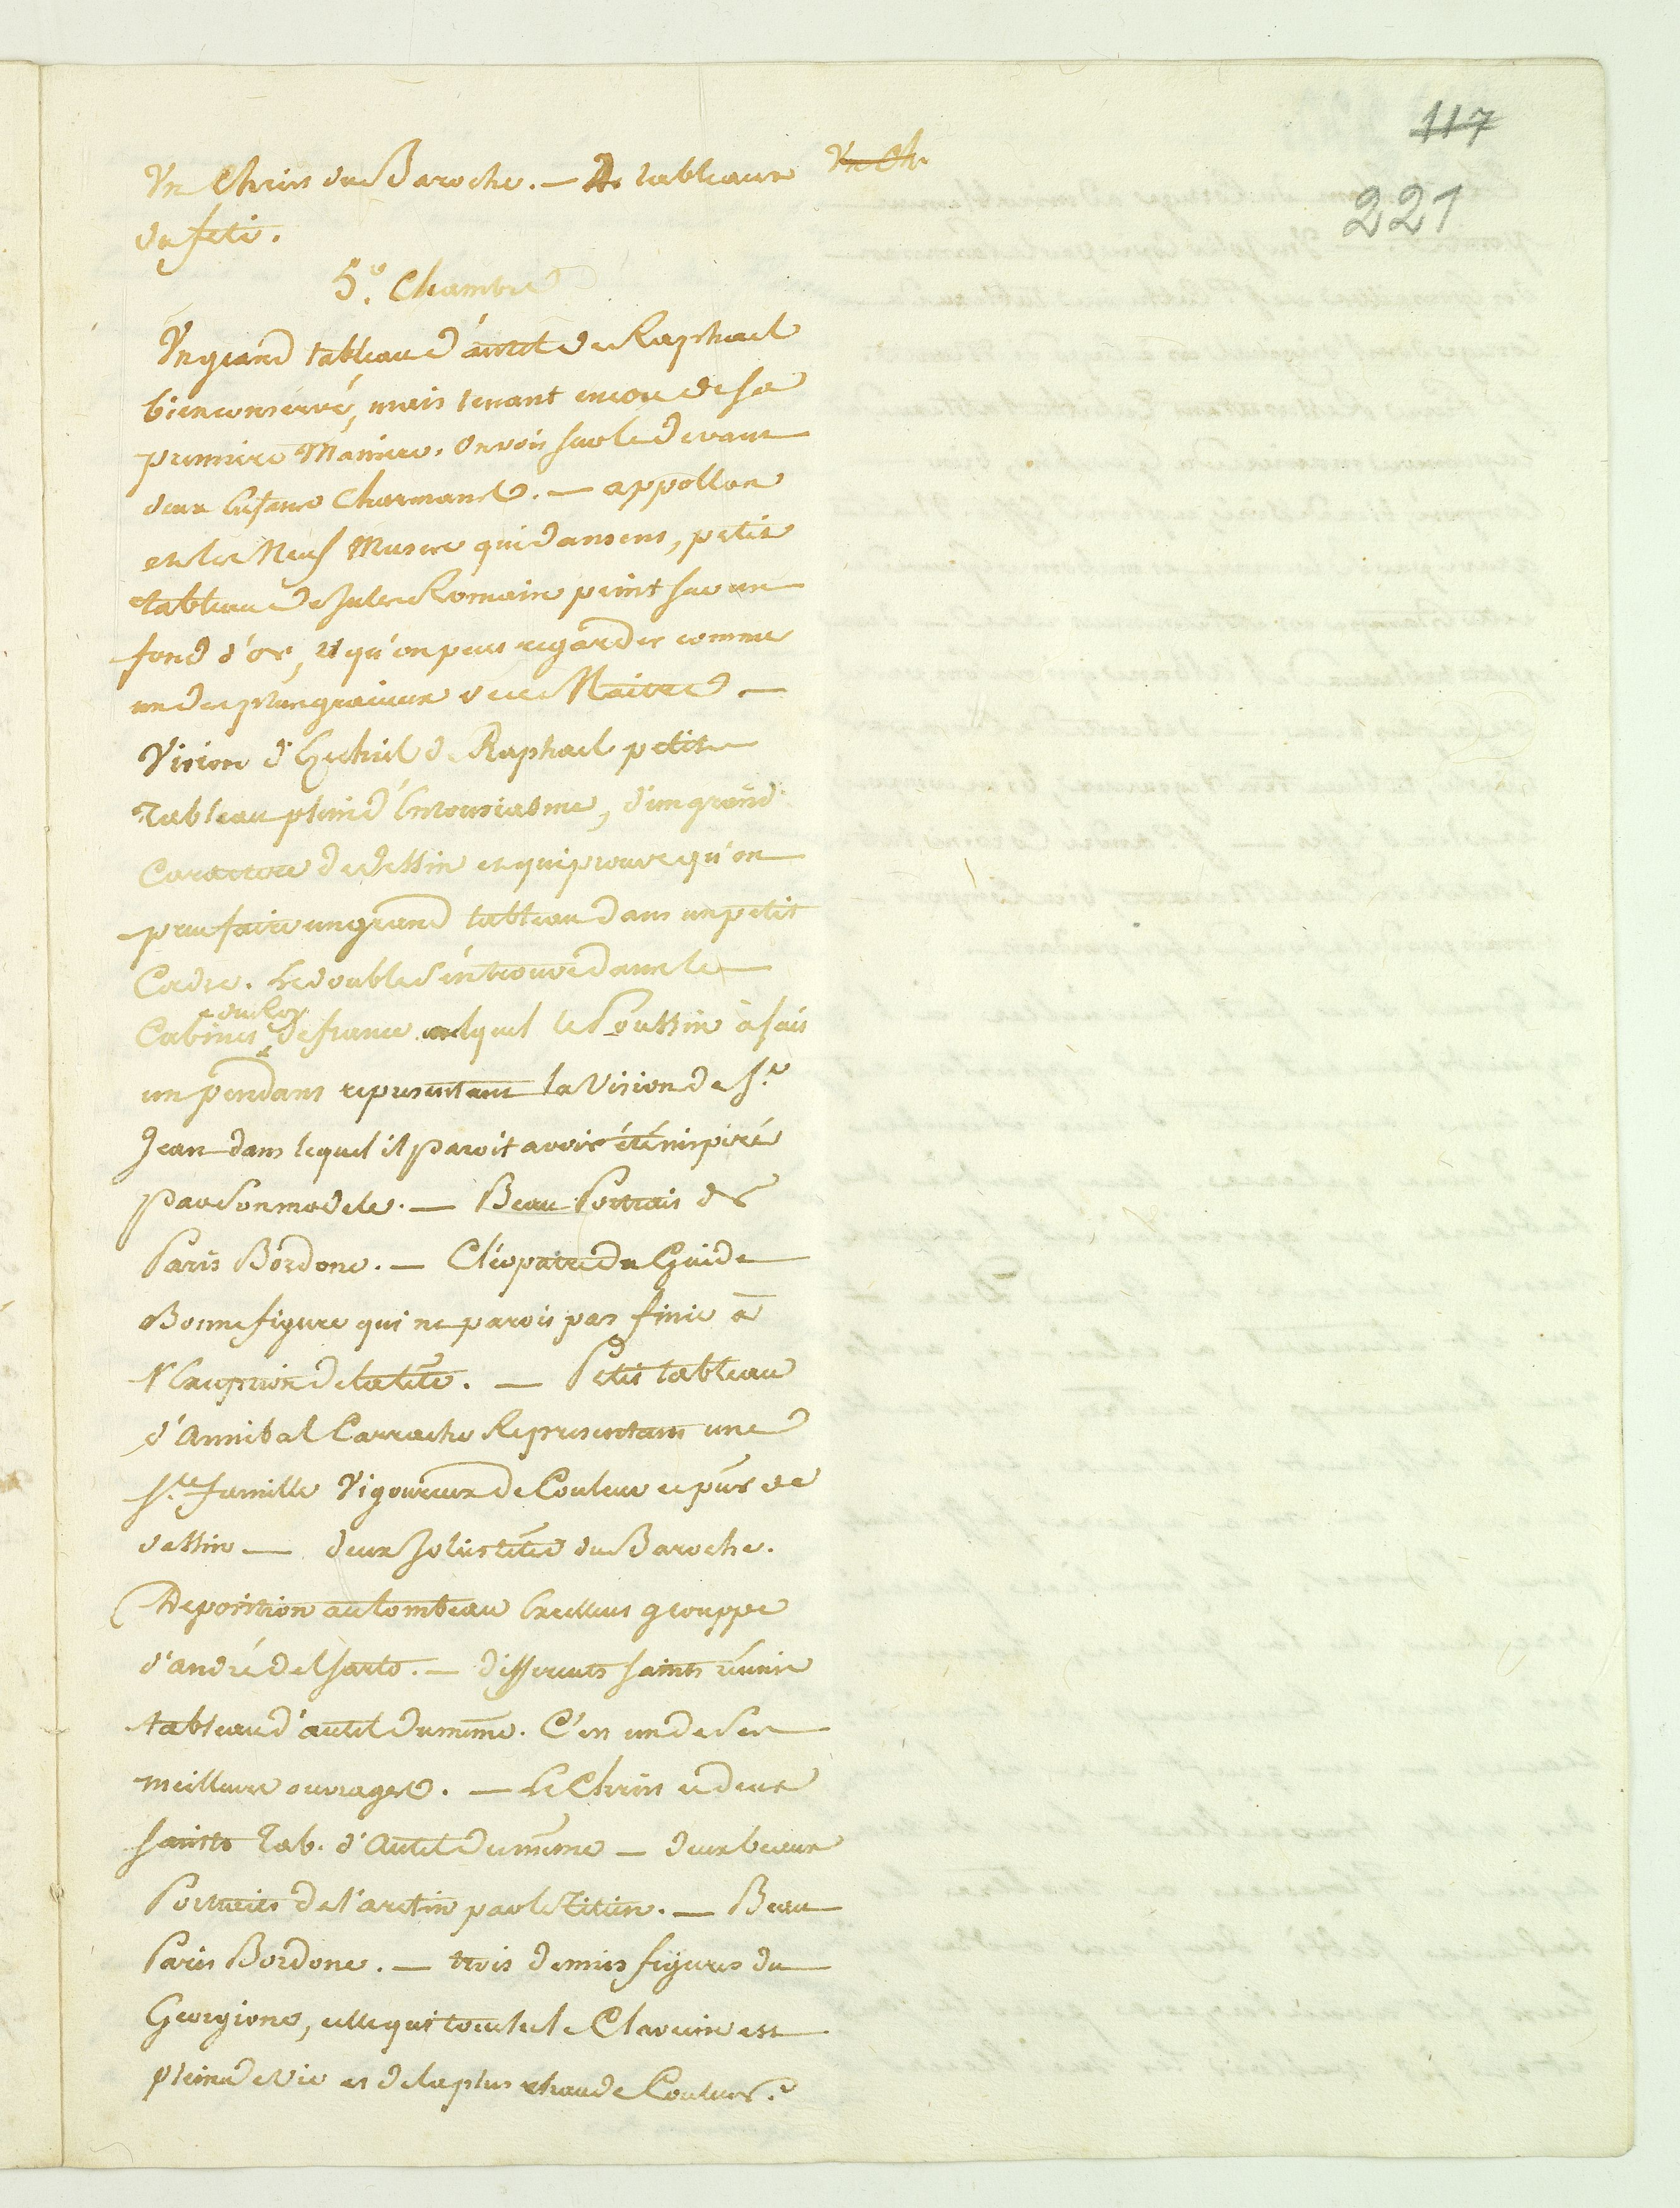 117
221
Un Christ du Baroche. — tableaux
du feti.
5.e Chambre
Un grand tableau d'autel de Raphael
bien conservé, mais tenant encore de sa
premiere Maniere. On voit sur le devant
deux Enfans Charmans. — appollon
et les Neuf Muses qui dansent, petit
tableau de Jules Romain peint sur un
fond d'or, et qu'on peut regarder comme
un des plus gracieux de ce Maitre —
Vision d'Ezechiel de Raphael petit
Tableau plein d'Entousiasme, d'un grand
Caractere de dessin et qui prouve qu'on
peut faire un grand tableau dans un petit
Cadre. Le double s'en trouve dans le
Cabinet du Roy de france auquel le Poussin à fait
un pendant representant la Vision de St.
Jean dans lequel il paroit avoir été inspiré
par son modele. — Beau Portrait de
Paris Bordone. — Cléopatre du Guide
Bonne figure qui ne paroit pas finie à
l'Exception de la tête. — Petit tableau
d'Annibal Carrache Representant une
Ste. famille Vigoureux de Couleur et pur de
dessin — deux Jolies têtes du Baroche.
Deposition au tombeau Excellent grouppe
d'andré del Sarto. — differents Saints réunis
tableau d'autel du même. C'est un de ses
meilleurs ouvrages. — Le Christ et deux
saints Tab. d'Autel du même — deux beaux
Portraits de l'aretin par le Titien. — Beau
Paris Bordone. — trois demies figures du
Georgione, celle qui touche le Clavecin est
pleine de vie et de la plus chaude Couleur.
Un Ch.